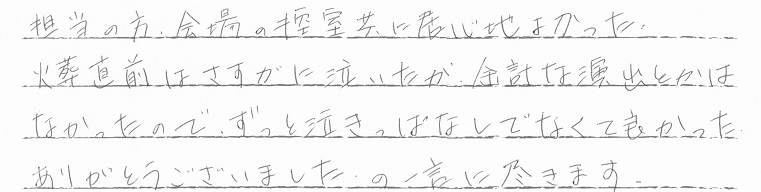 担当の方、会場の控室共に居心地よかった.
火葬直前はさすがに泣いたが、余計な演出とかは
なかったので、ずっと泣きっぱなしでなくて良かった.
ありがとうございました.の一言に尽きます.